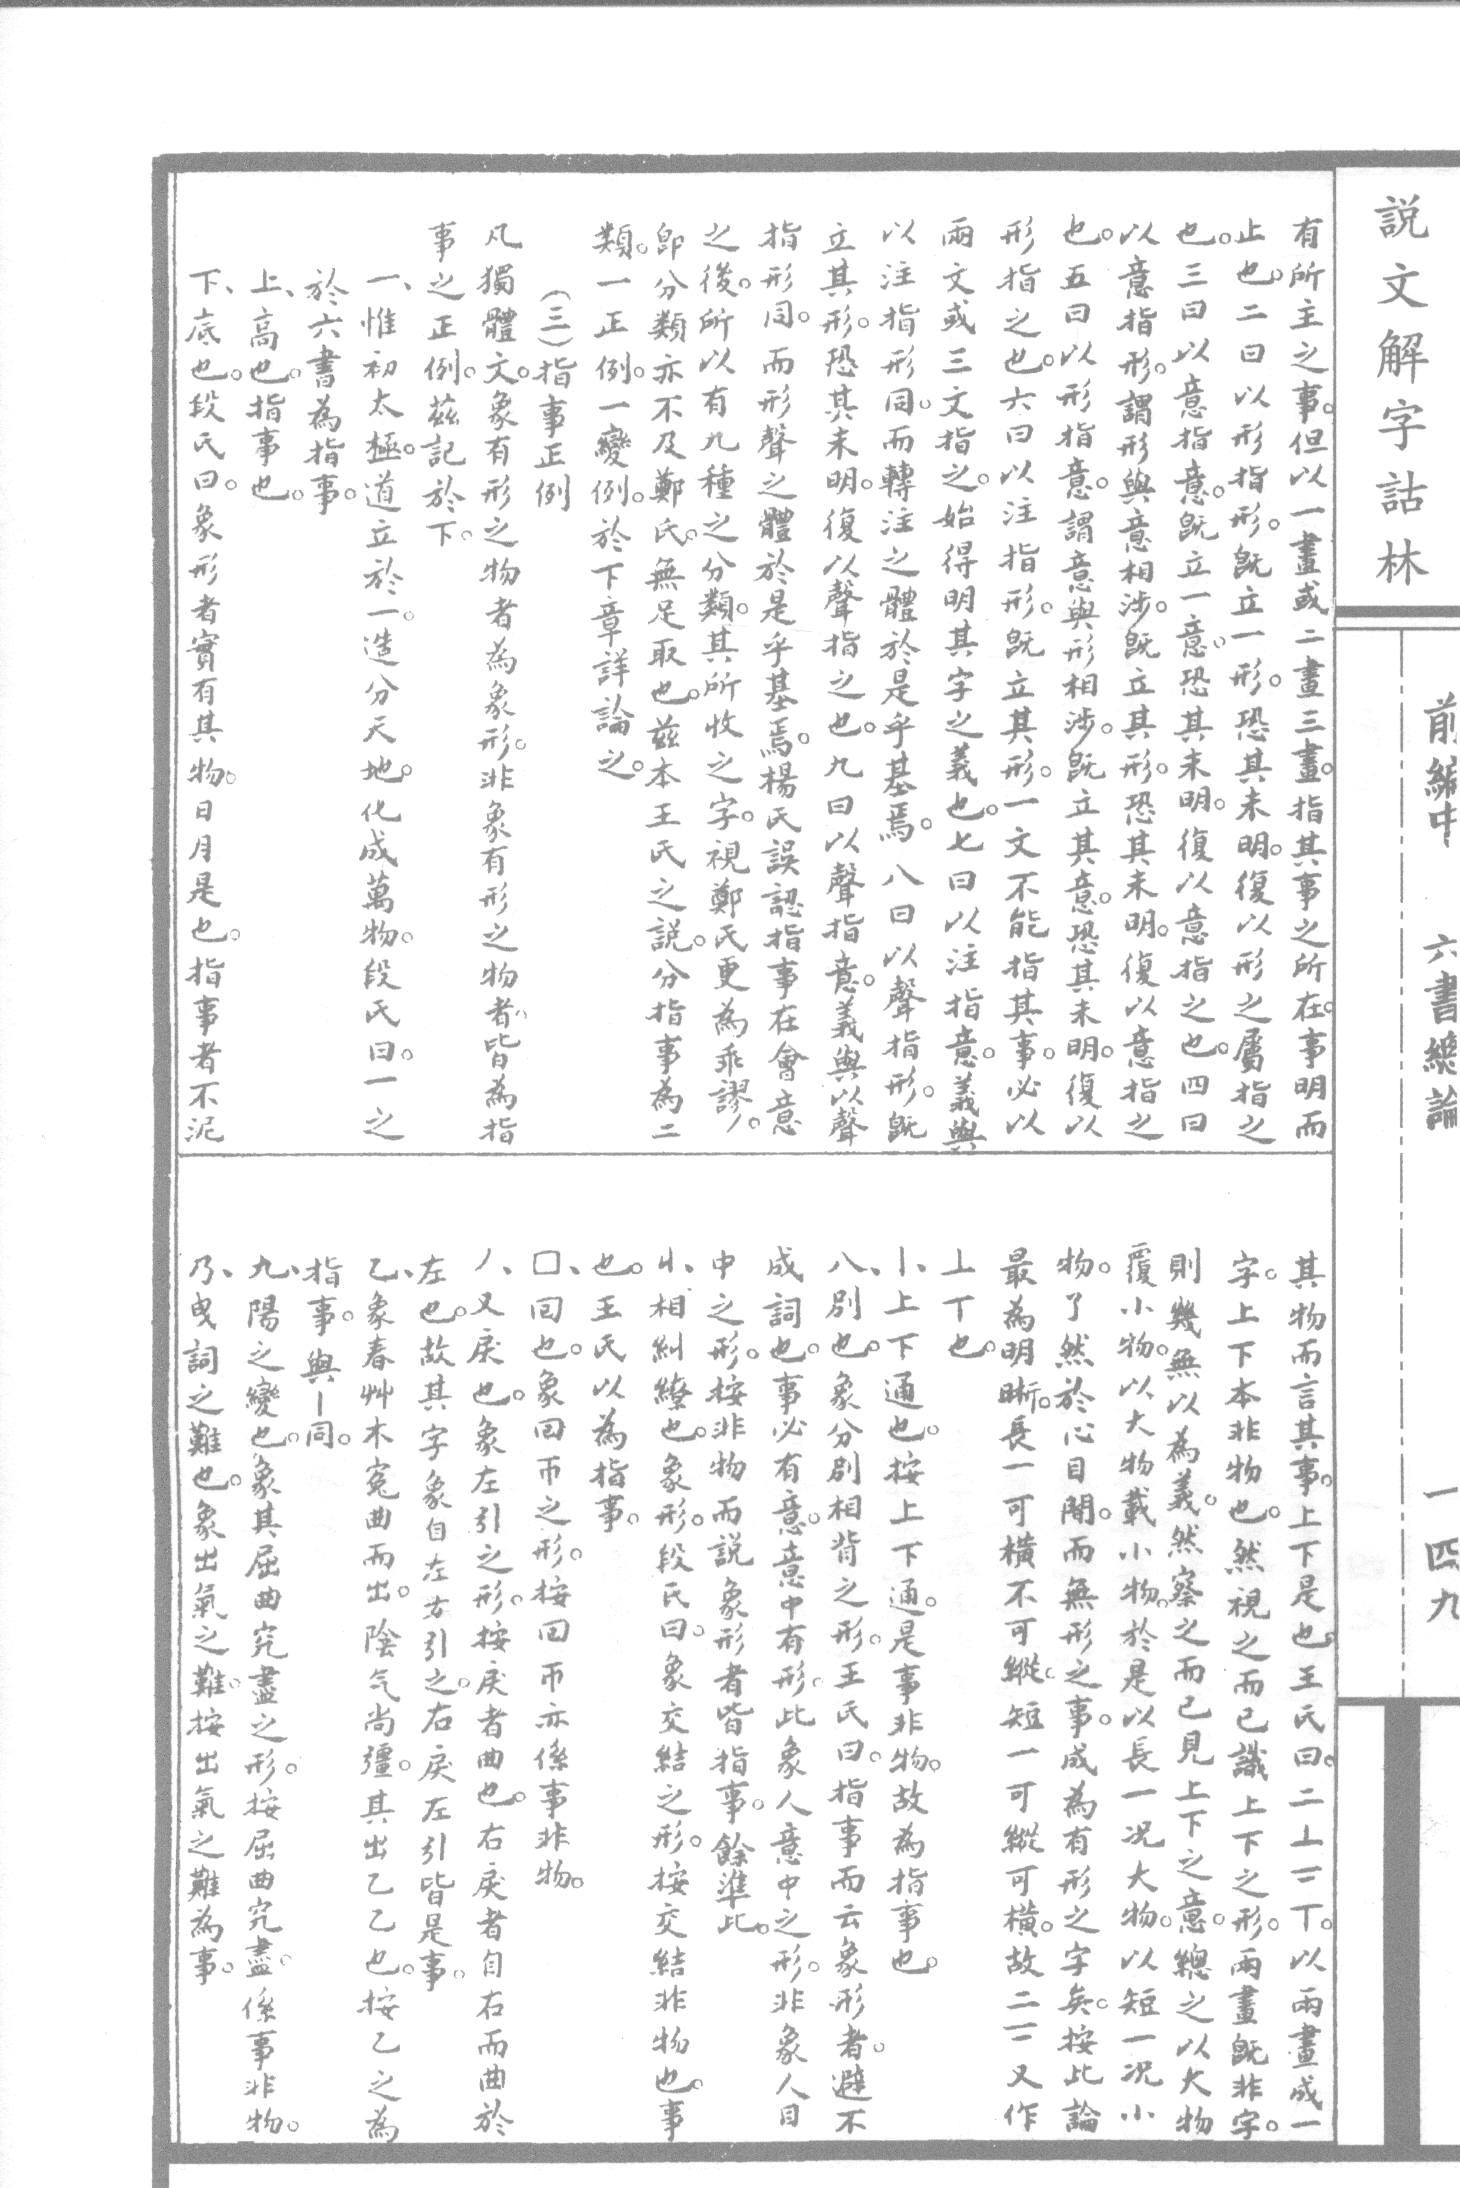 說文解字詁林
前編中　六書總論　一四九
有所主之事。但以一畫或二畫三畫。指其事之所在。事明而
止也。二曰以形指形。旣立一形。恐其未明。復以形之屬指之
也。三曰以意指意。旣立一意。恐其未明。復以意指之也。四曰
以意指形。謂形與意相涉。旣立其形。恐其未明。復以意指之
也。五曰以形指意。謂意與形相涉。旣立其意。恐其未明。復以
形指之也。六曰以注指形。旣立其形。一文不能指其事。必以
兩文或三文指之。始得明其字之義也。七曰以注指意。義與
以注指形同。而轉注之體於是乎基焉。八曰以聲指形。旣
立其形。恐其未明。復以聲指之也。九曰以聲指意。義與以聲
指形同。而形聲之體於是乎基焉。楊氏誤認指事在會意
之後。所以有九種之分類。其所收之字。視鄭氏更為乖謬。
卽分類亦不及鄭氏。無足取也。茲本王氏之說。分指事為二
類。一正例。一變例。於下章詳論之。
（三）指事正例
凡獨體文。象有形之物者為象形。非象有形之物者。皆為指
事之正例。茲記於下。
一、惟初太極。道立於一。造分天地。化成萬物。段氏曰。一之
於六書為指事。
上、高也。指事也。
下、底也。段氏曰。象形者實有其物。日月是也。指事者不泥
其物而言其事。上下是也。王氏曰。二丄二丅。以兩畫成一
字。上下本非物也。然視之而已識上下之形。兩畫旣非字。
則幾無以為義。然察之而已見上下之意。總之以大物
覆小物。以大物載小物。於是以長一况大物。以短一况小
物。了然於心目閒。而無形之事。成為有形之字矣。按此論
最為明晰。長一可橫不可縱。短一可縱可橫。故二二又作
丄丅也。
丨、上下通也。按上下通。是事非物。故為指事也。
八、別也。象分別相背之形。王氏曰。指事而云象形者。避不
成詞也。事必有意。意中有形。此象人意中之形。非象人目
中之形。按非物而說象形者皆指事。餘準此。
丩、相糾繚也。象形。段氏曰。象交結之形。按交結非物也。事
也。王氏以為指事。
囗、回也。象回帀之形。按回帀亦係事非物。
丿、又戾也。象左引之形。按戾者曲也。右戾者自右而曲於
左也。故其字象自左方引之。右戾左引皆是事。
乙、象春艸木寃曲而出。陰气尚彊。其出乙乙也。按乙之為
指事。與丨同。
九、陽之變也。象其屈曲究盡之形。按屈曲究盡。係事非物。
乃、曳詞之難也。象出氣之難。按出氣之難為事。